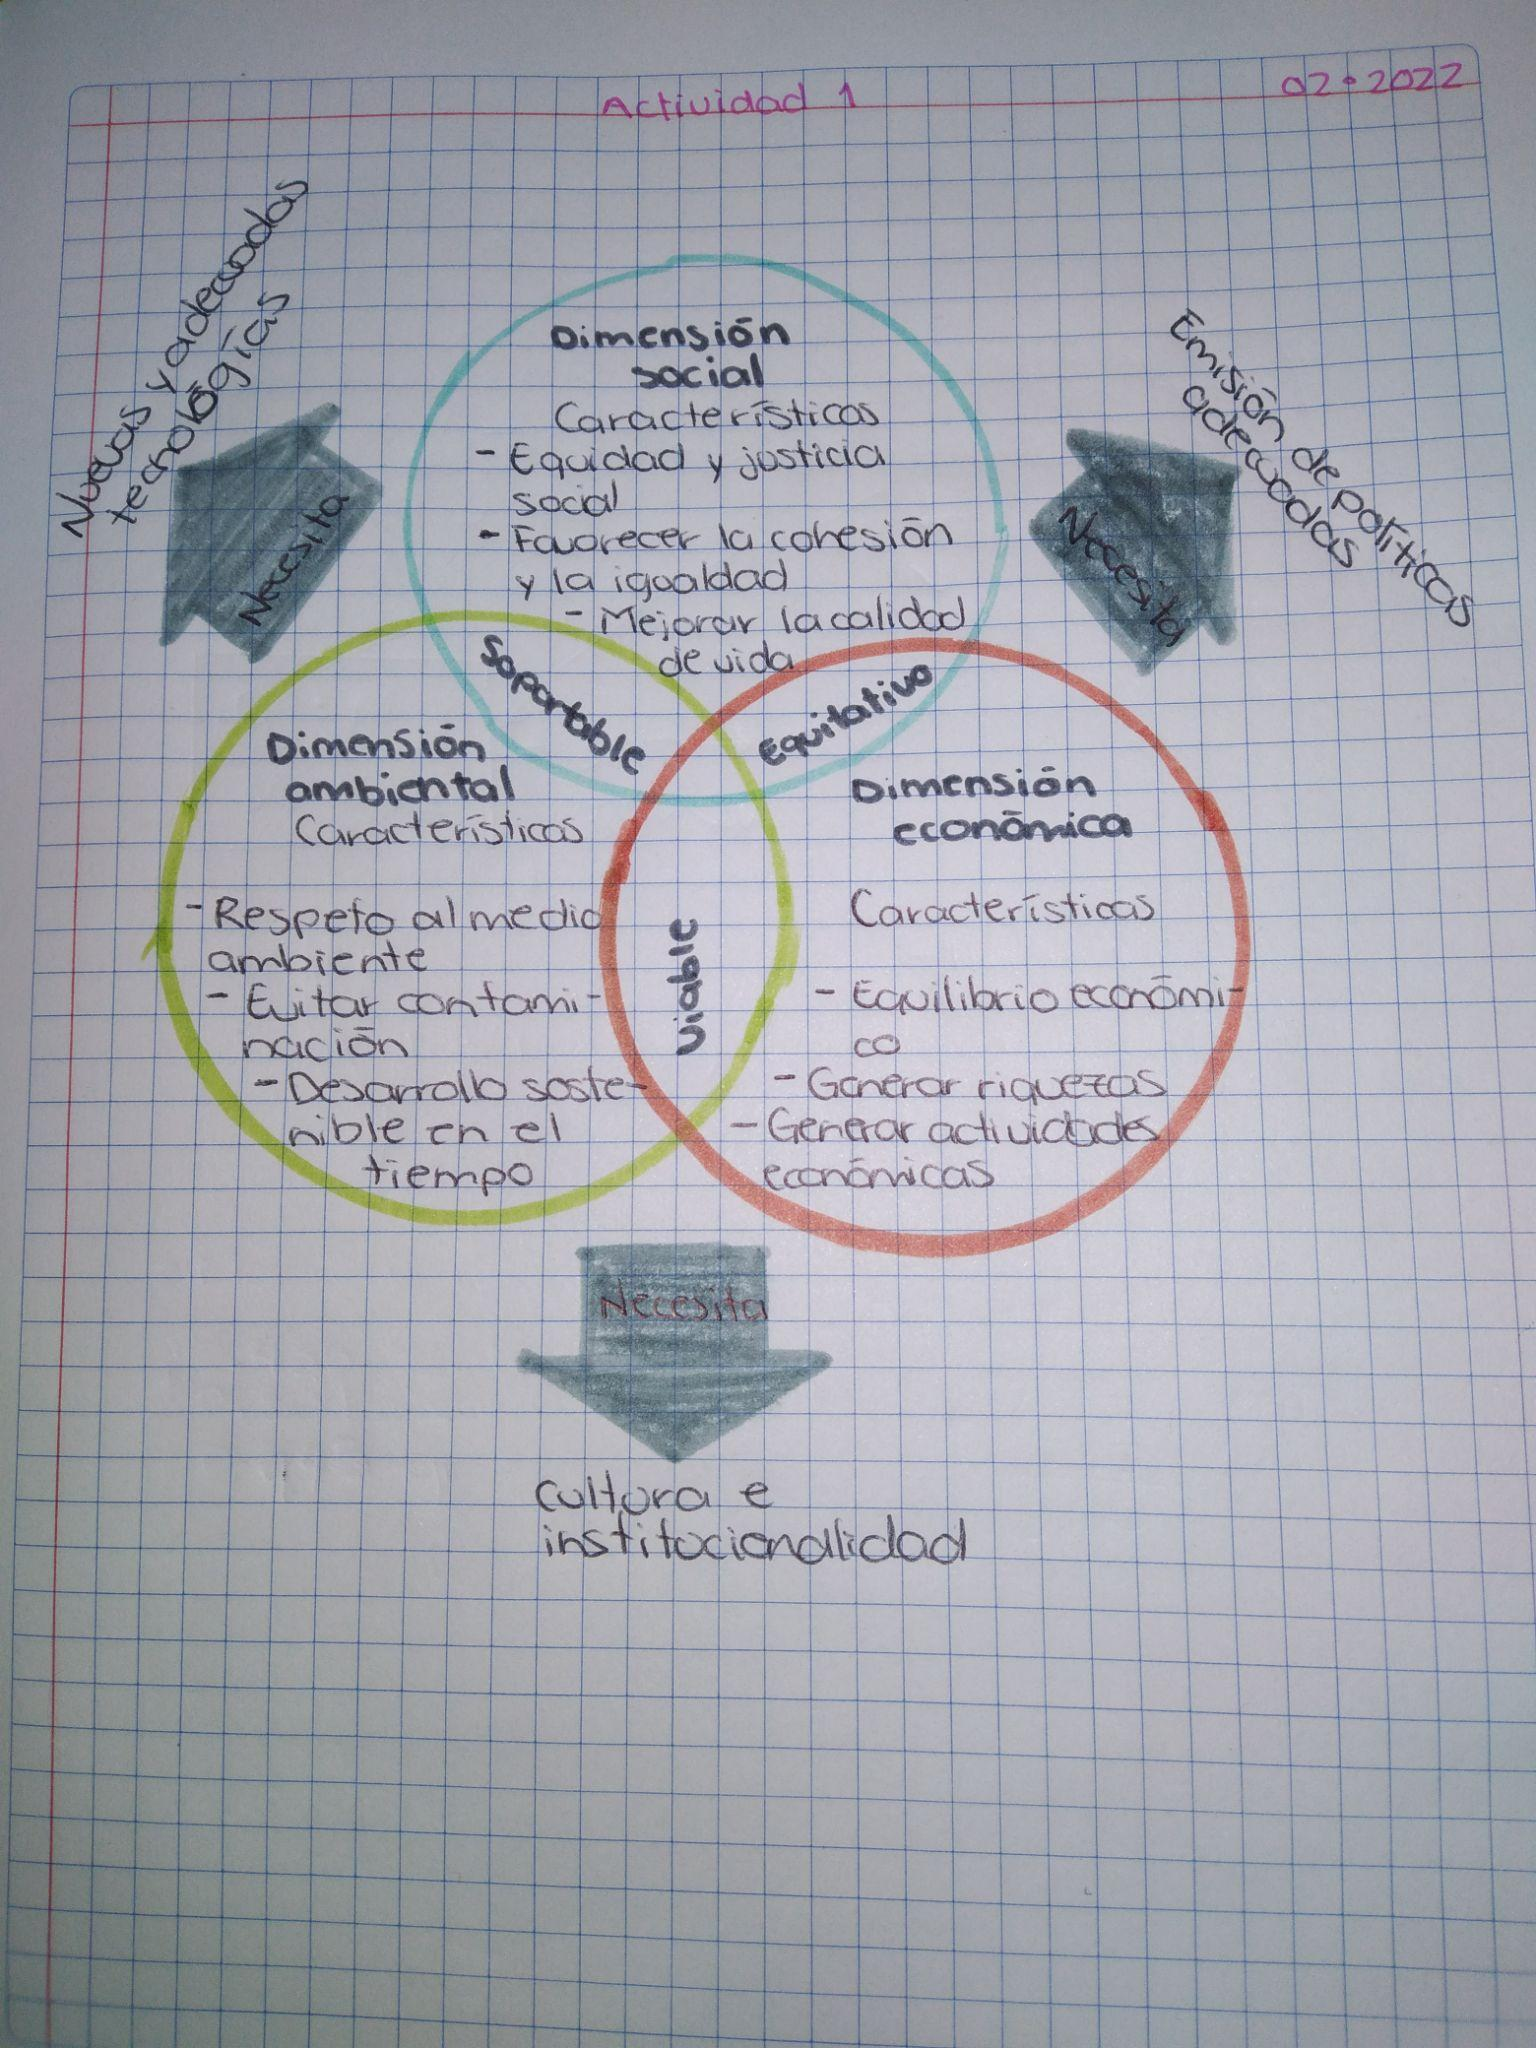 Actividad 1
02•2022
Nuevas y adecuadas
tecnologías
Necesita
Emisión de políticas
adecuadas
Necesita
Dimensión
social
Características
- Equidad y justicia
social
- Favorecer la cohesión
y la igualdad
- Mejorar la calidad
de vida
Soportable
Equitativo
Dimensión
ambiental
Características
- Respeto al medio
ambiente
- Evitar contami-
nación
- Desarrollo soste-
nible en el
tiempo
Viable
Dimensión
económica
Características
- Equilibrio económi-
co
- Generar riquezas
- Generar actividades
económicas
Necesita
Cultura e
institucionalidad